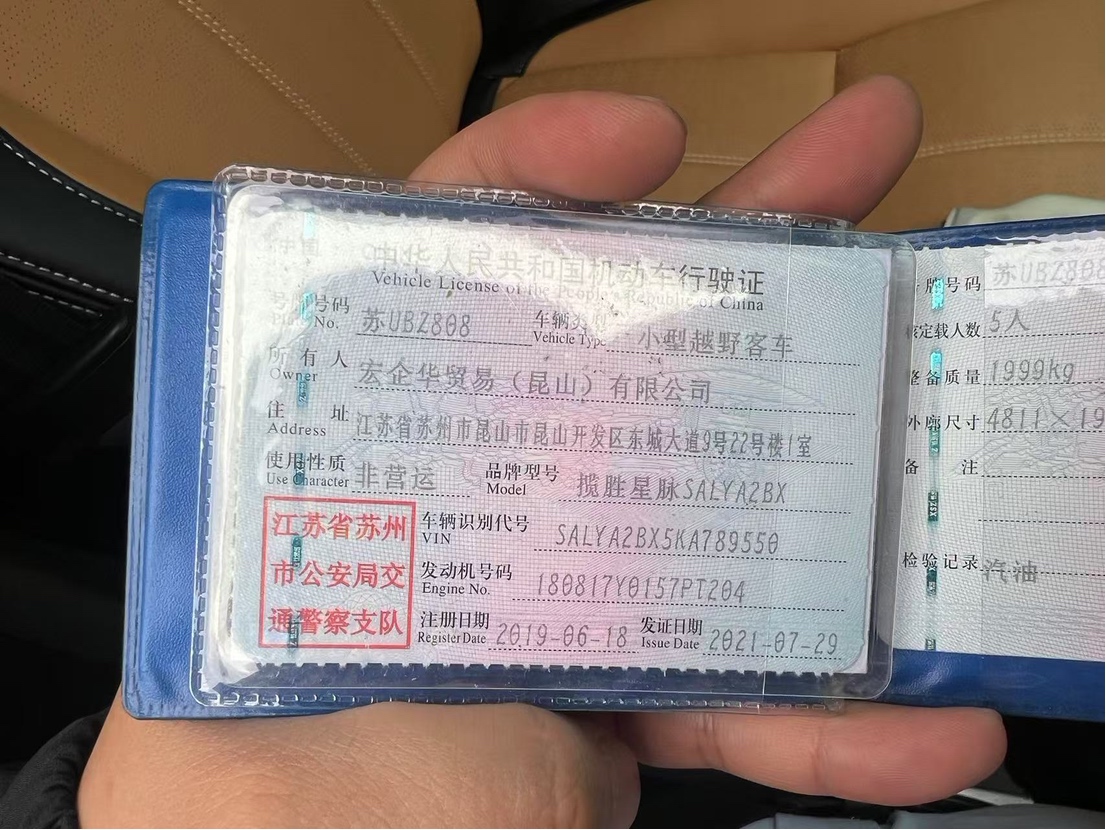 中华人民共和国机动车行驶证
Vehicle License of the People's Republic of China
号牌号码 苏UBZ808 车辆类型 小型越野客车
Plate No. Vehicle Type
所有人 宏企华贸易（昆山）有限公司
Owner
住址 江苏省苏州市昆山市昆山开发区东城大道9号22号楼1室
Address
使用性质 非营运 品牌型号 揽胜星脉SALYA2BX
Use Character Model
江苏省苏州
市公安局交
通警察支队
车辆识别代号 SALYA2BX5KA789550
VIN
发动机号码 180817Y0157PT204
Engine No.
注册日期 2019-06-18 发证日期 2021-07-29
Register Date Issue Date
号牌号码 苏UBZ808
核定载人数 5人
整备质量 1999kg
外廓尺寸 4811×19
备注
检验记录 汽油